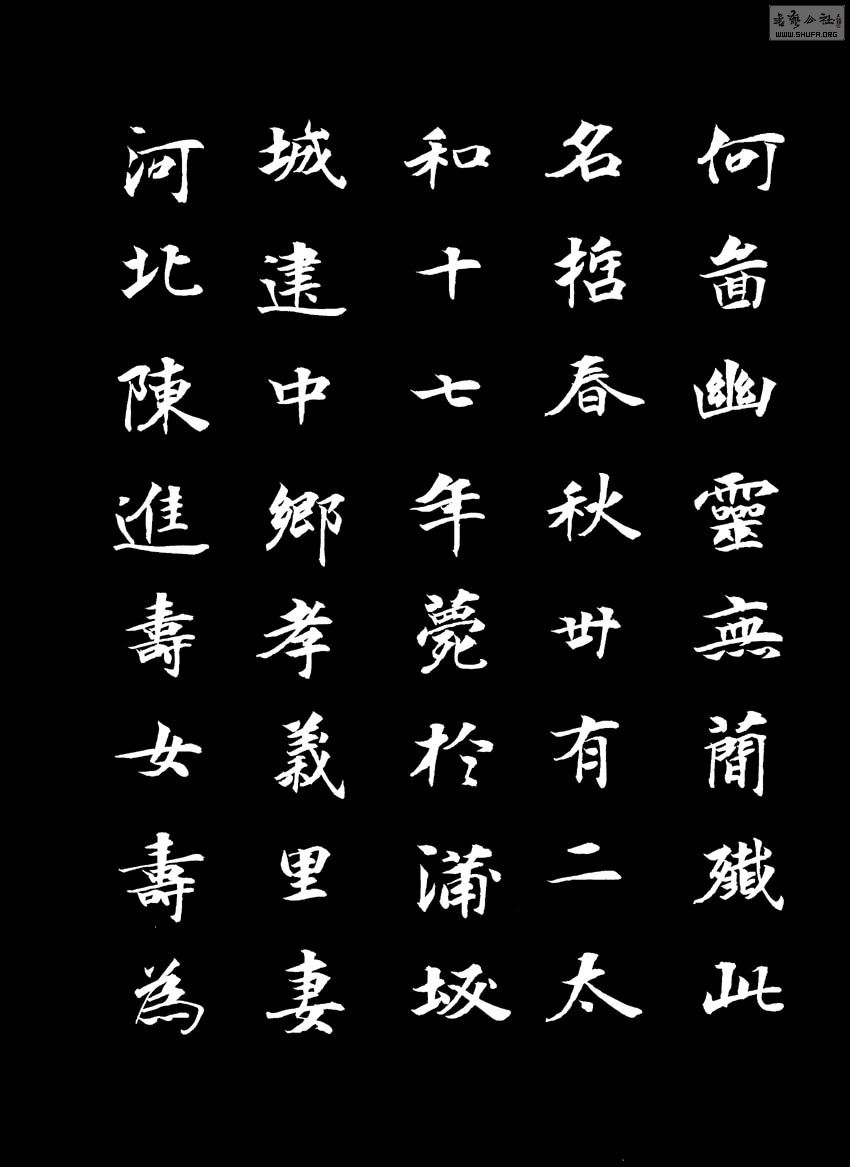 何啚幽靈無蕳殲此
名哲春秋卅有二太
和十七年薨於蒲坂
城建中鄉孝義里妻
河北陳進壽女壽為
書藝公社
WWW.SHUFA.ORG